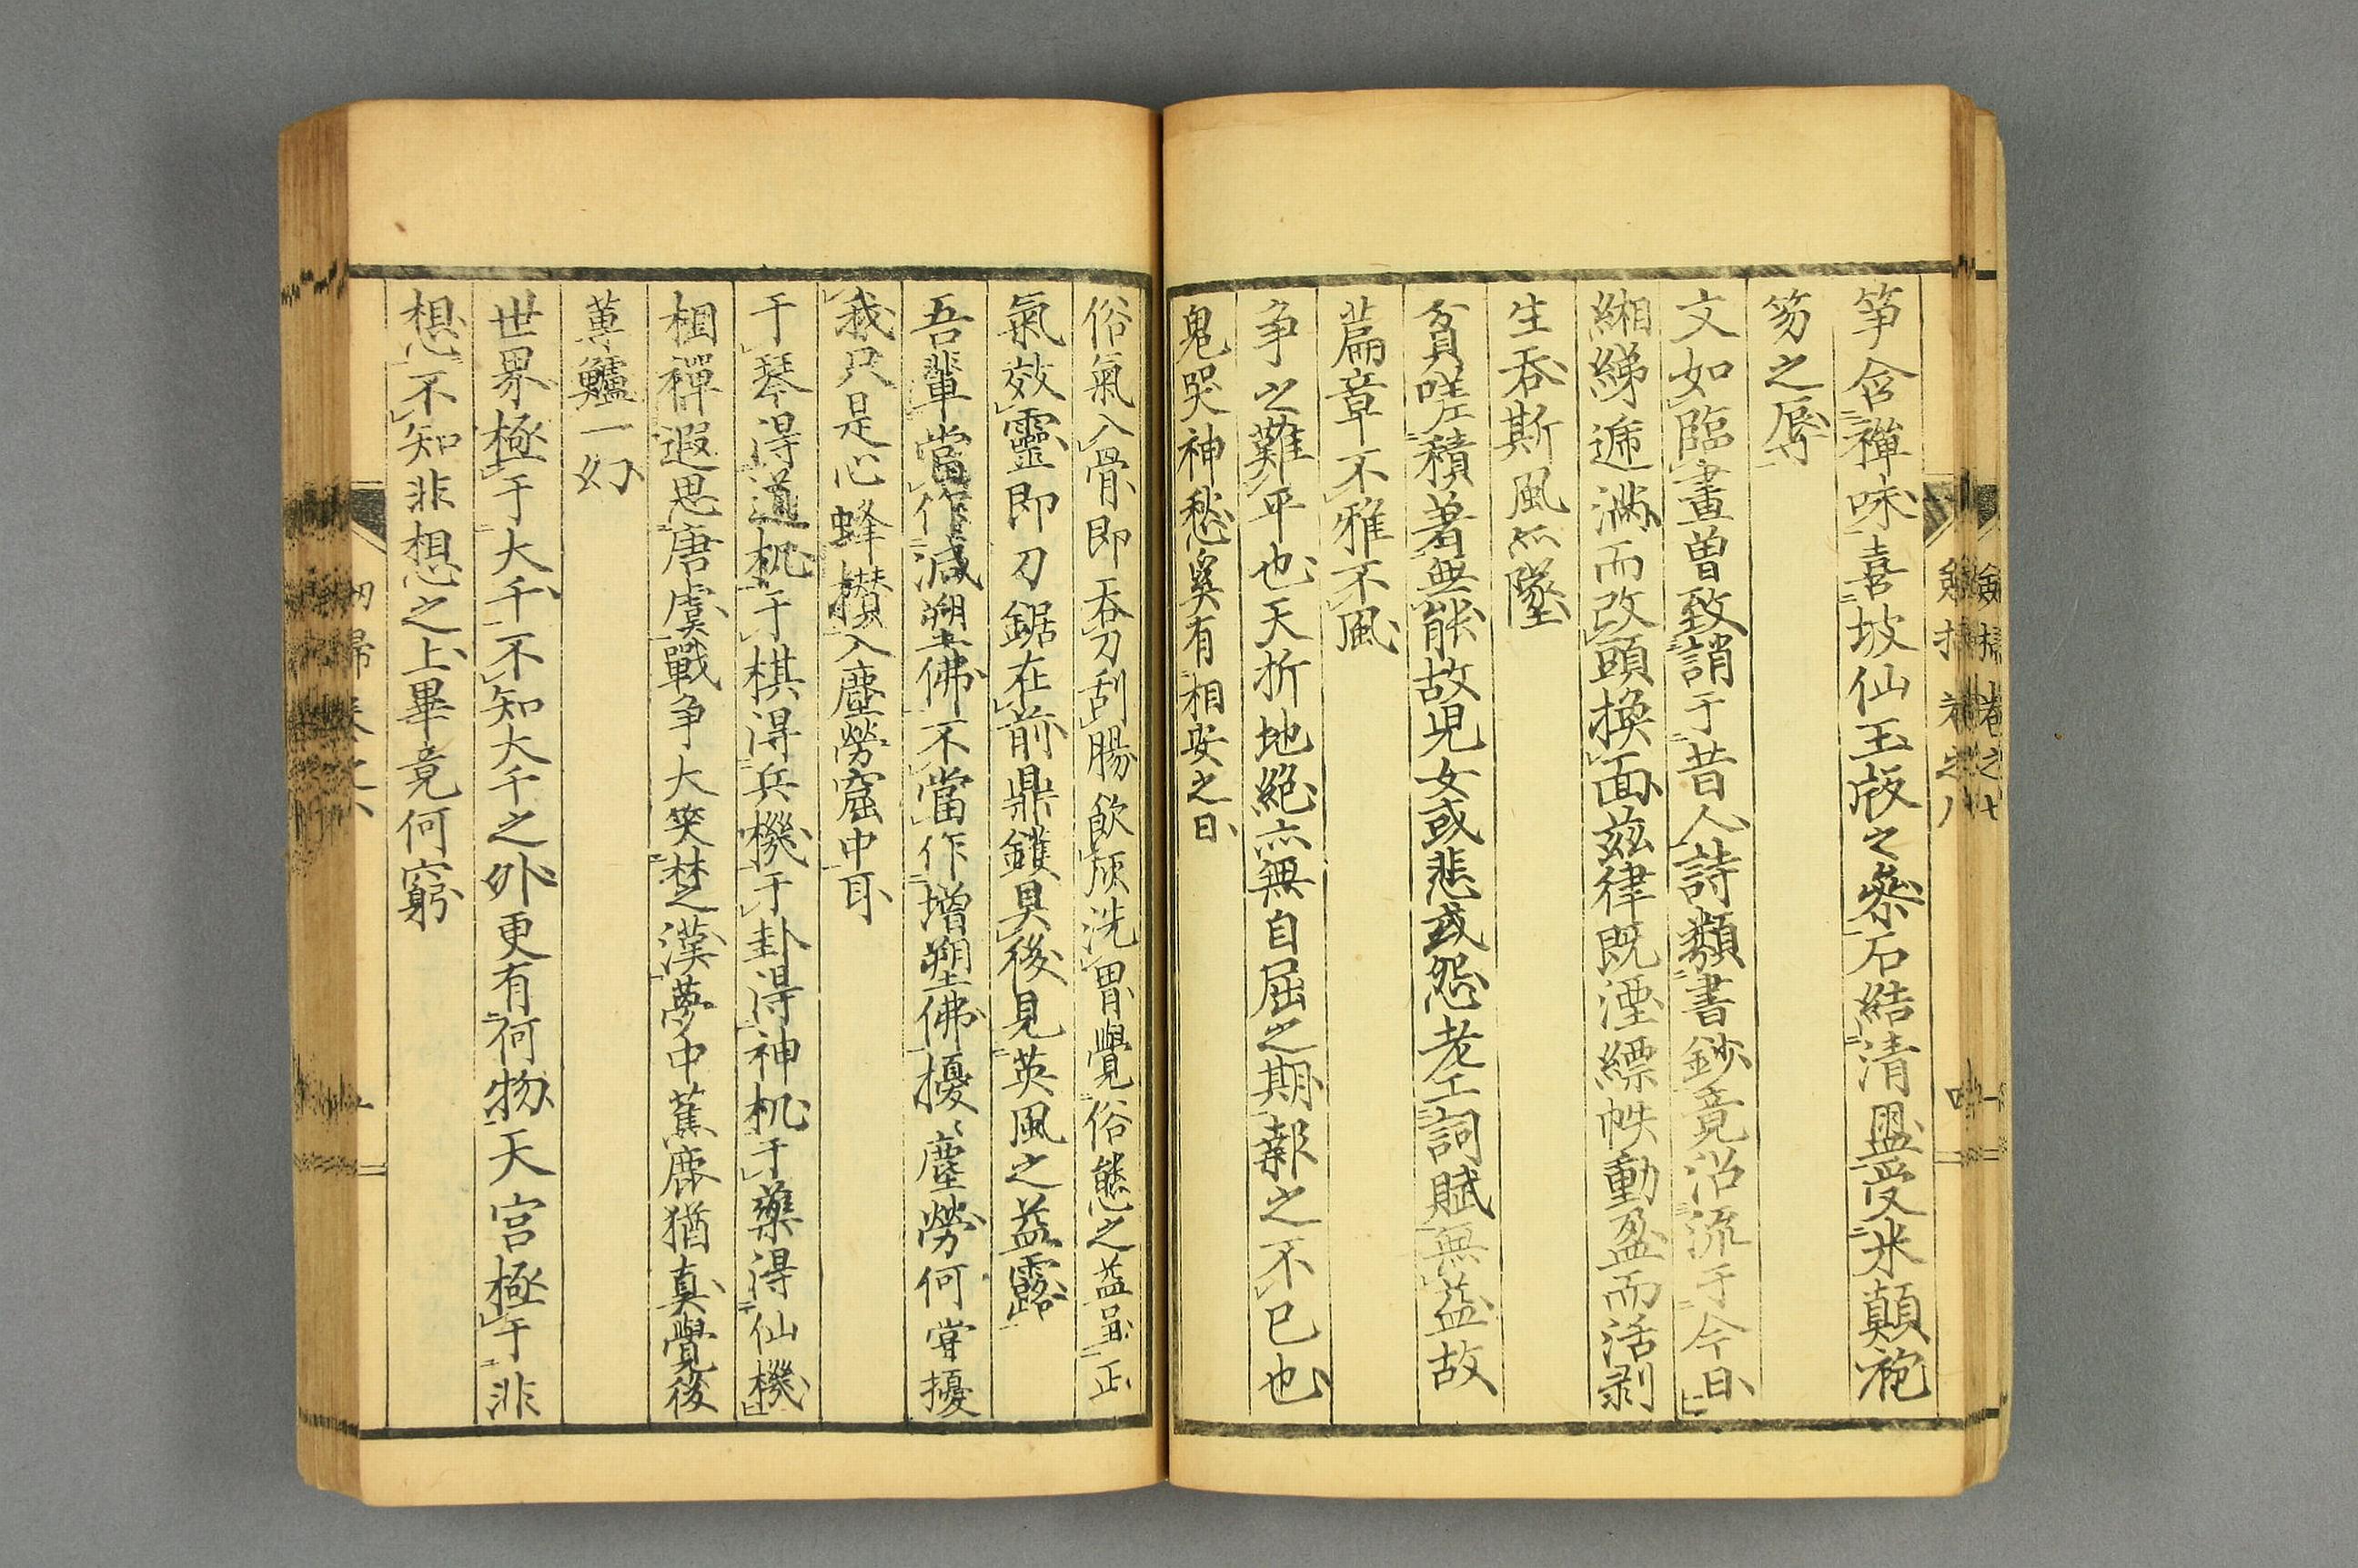 笋含禪味喜坡仙玉版之參石結清盟受米顛袍
笏之辱
文如臨畫曽致誚于昔人詩類書鈔竟沿流于今日
緗綈逓滿而改頭換面兹律既湮縹帙動盈而活剥
生吞斯風亦墜
貧嗟積著無能故児女或悲或怨老工詞賦無益故
篇章不雅不風
争之難平也天折地絕亦無自屈之期報之不已也
鬼哭神愁奚有相安之日
俗氣入骨即吞刀刮腸飲灰洗胃覺俗態之益呈正
氣效靈即刀鋸在前鼎鑊具後見英風之益露
吾輩當作減塑佛不當作增塑佛擾〻塵勞何甞擾
我只是心蜂攢入塵勞窟中耳
于琴得道机于棋得兵機于卦得神机于藥得仙機
相禪遐思唐虞戰争大笑楚漢夢中蕉鹿猶真覺後
蓴鱸一幻
世界極于大千不知大千之外更有何物天宫極于非
想不知非想之上畢竟何窮